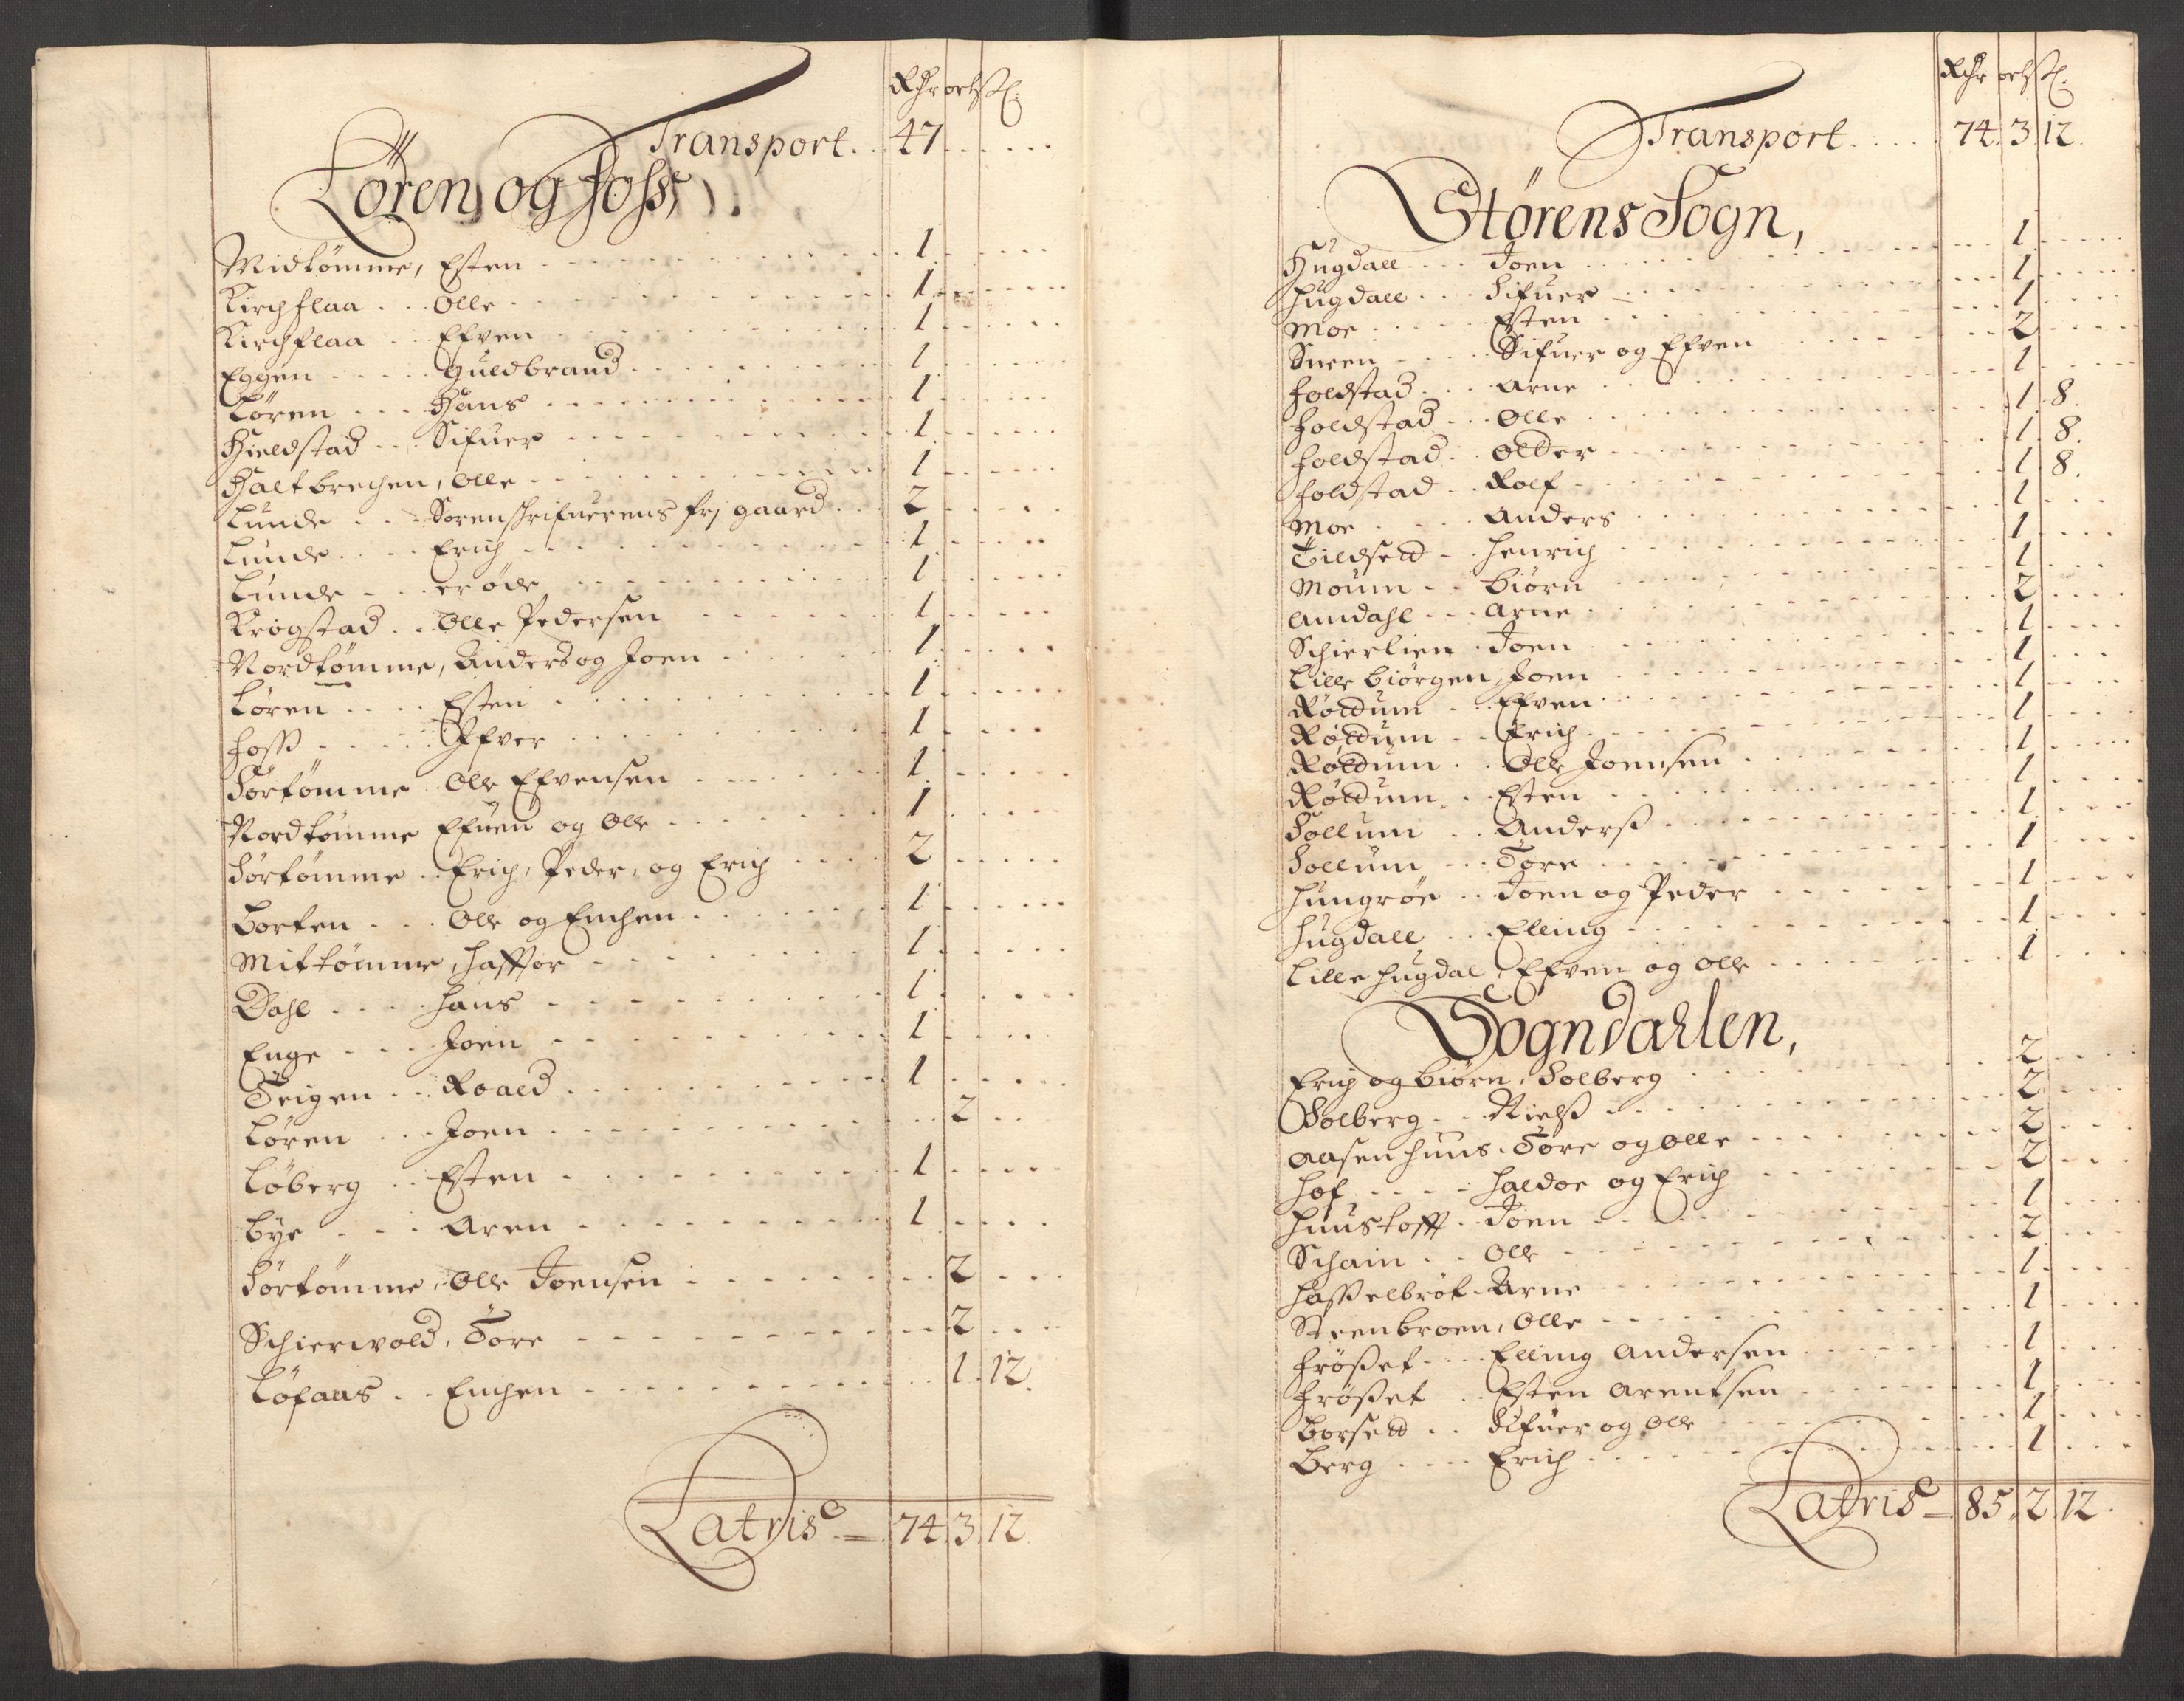 Rdr ort ß
Transport . . 47 . . . . .
Løren og Foss,
Midtømme, Esten . . . 1 . . . .
Kirchflaa . . Olle . . . 1 . . . .
Kirchflaa . . Efven . . . 1 . . . .
Eggen . . . . Guldbrand . . . 1 . . . .
Løren . . . Hans . . . 1 . . . .
Hieldstad . . Sifuer . . . 1 . . . .
Haltbrechen, Olle . . . 1 . . . .
Lunde . . . Sorenschrifuerens fri gaard . . 2 . . . .
Lunde . . . . Erich . . . 1 . . . .
Lunde . . . er øde . . . 1 . . . .
Krogstad . . Olle Pedersen . . . 1 . . . .
Nordtømme, Anders og Joen . . . 1 . . . .
Løren . . . . Esten . . . 1 . . . .
Foss . . . . . Ifver . . . 1 . . . .
Sørtømme . Olle Efvensen . . . 1 . . . .
Nordtømme Efuen og Olle . . . 1 . . . .
Sørtømme . . Erich, Peder, og Erich . . . 2 . . . .
Borten . . . Olle og Enchen . . . 1 . . . .
Mittømme, Haffor . . . 1 . . . .
Dahl . . . . Hans . . . 1 . . . .
Enge . . . Joen . . . 1 . . . .
Teigen . . . Roald . . . 1 . . . .
Løren . . . Joen . . . 2 . .
Løberg . . Esten . . . 1 . . . .
Bye . . . Aren . . . 1 . . . .
Sørtømme, Olle Joensen . . . 2 . . .
Schierwold, Tore . . . 2 . . .
Løfaas . . Enchen . . . 1 . 12.
Latris = 74. 3. 12.
Rdr ort ß
Transport . . . . 74. 3. 12.
Størens Sogn,
Hugdall . . . . Joen . . . 1 . . . .
Hugdall . . . Sifuer . . . 1 . . . .
Moe . . . . . Esten . . . 1 . . . .
Sneen . . . . Sifuer og Efven . . . 2 . . . .
Foldstad . . . Arne . . . 1 . . . .
Foldstad . . . Olle . . . 1. 8.
Foldstad . . Older . . . 1. 8.
Foldstad . . Rolf . . . 1. 8.
Moe . . . . Anders . . . 1 . . .
Tildsett . . Henrich . . . 1 . . .
Moum . . Biørn . . . 1 . . .
Amdahl . . . Arne . . . 2 . . . .
Schierlien . Joen . . . 1 . . . .
Lille Biørgen, Joen . . . 1 . . .
Røttum . . . Efven . . . 1 . . . .
Røttum . . Erich . . . 1 . . . .
Røttum . . Olle Joensen . . . 1 . . . .
Røttum . . Esten . . . 1 . . . .
Sollum . . Anderß . . . 1 . . . .
Sollum . . . Tore . . . 1 . . . .
Hungrøe . . Joen og Peder . . . 1 . . . .
Hugdall . . . Elling . . . 1 . . . .
Lille Hugdal, Efven og Olle . . . 1 . . .
Sogndahlen,
Erich og Biørn, Solberg . . . 2 . . . .
Solberg . . . Nielß . . . 2 . . .
Aasenhuus . Tore og Olle . . . 2 . . .
Hof . . . . Haldor og Erich . . . 2 . . .
Huustofft . . Joen . . . 1 . . . .
Schain . . Olle . . . 2 . . .
Hasselbrøt . Arne . . . 1 . . . .
Steenbroen, Olle . . . 1 . . . .
Frøßet . . . Elling Andersen . . . 1 . . . .
Frøßet . . Esten Arentsen . . . 1 . . . .
Borsett . . Sifuer og Olle . . . 1 . . . .
Berg . . . . Erich . . . 1 . . .
Latris = 85. 2. 12.